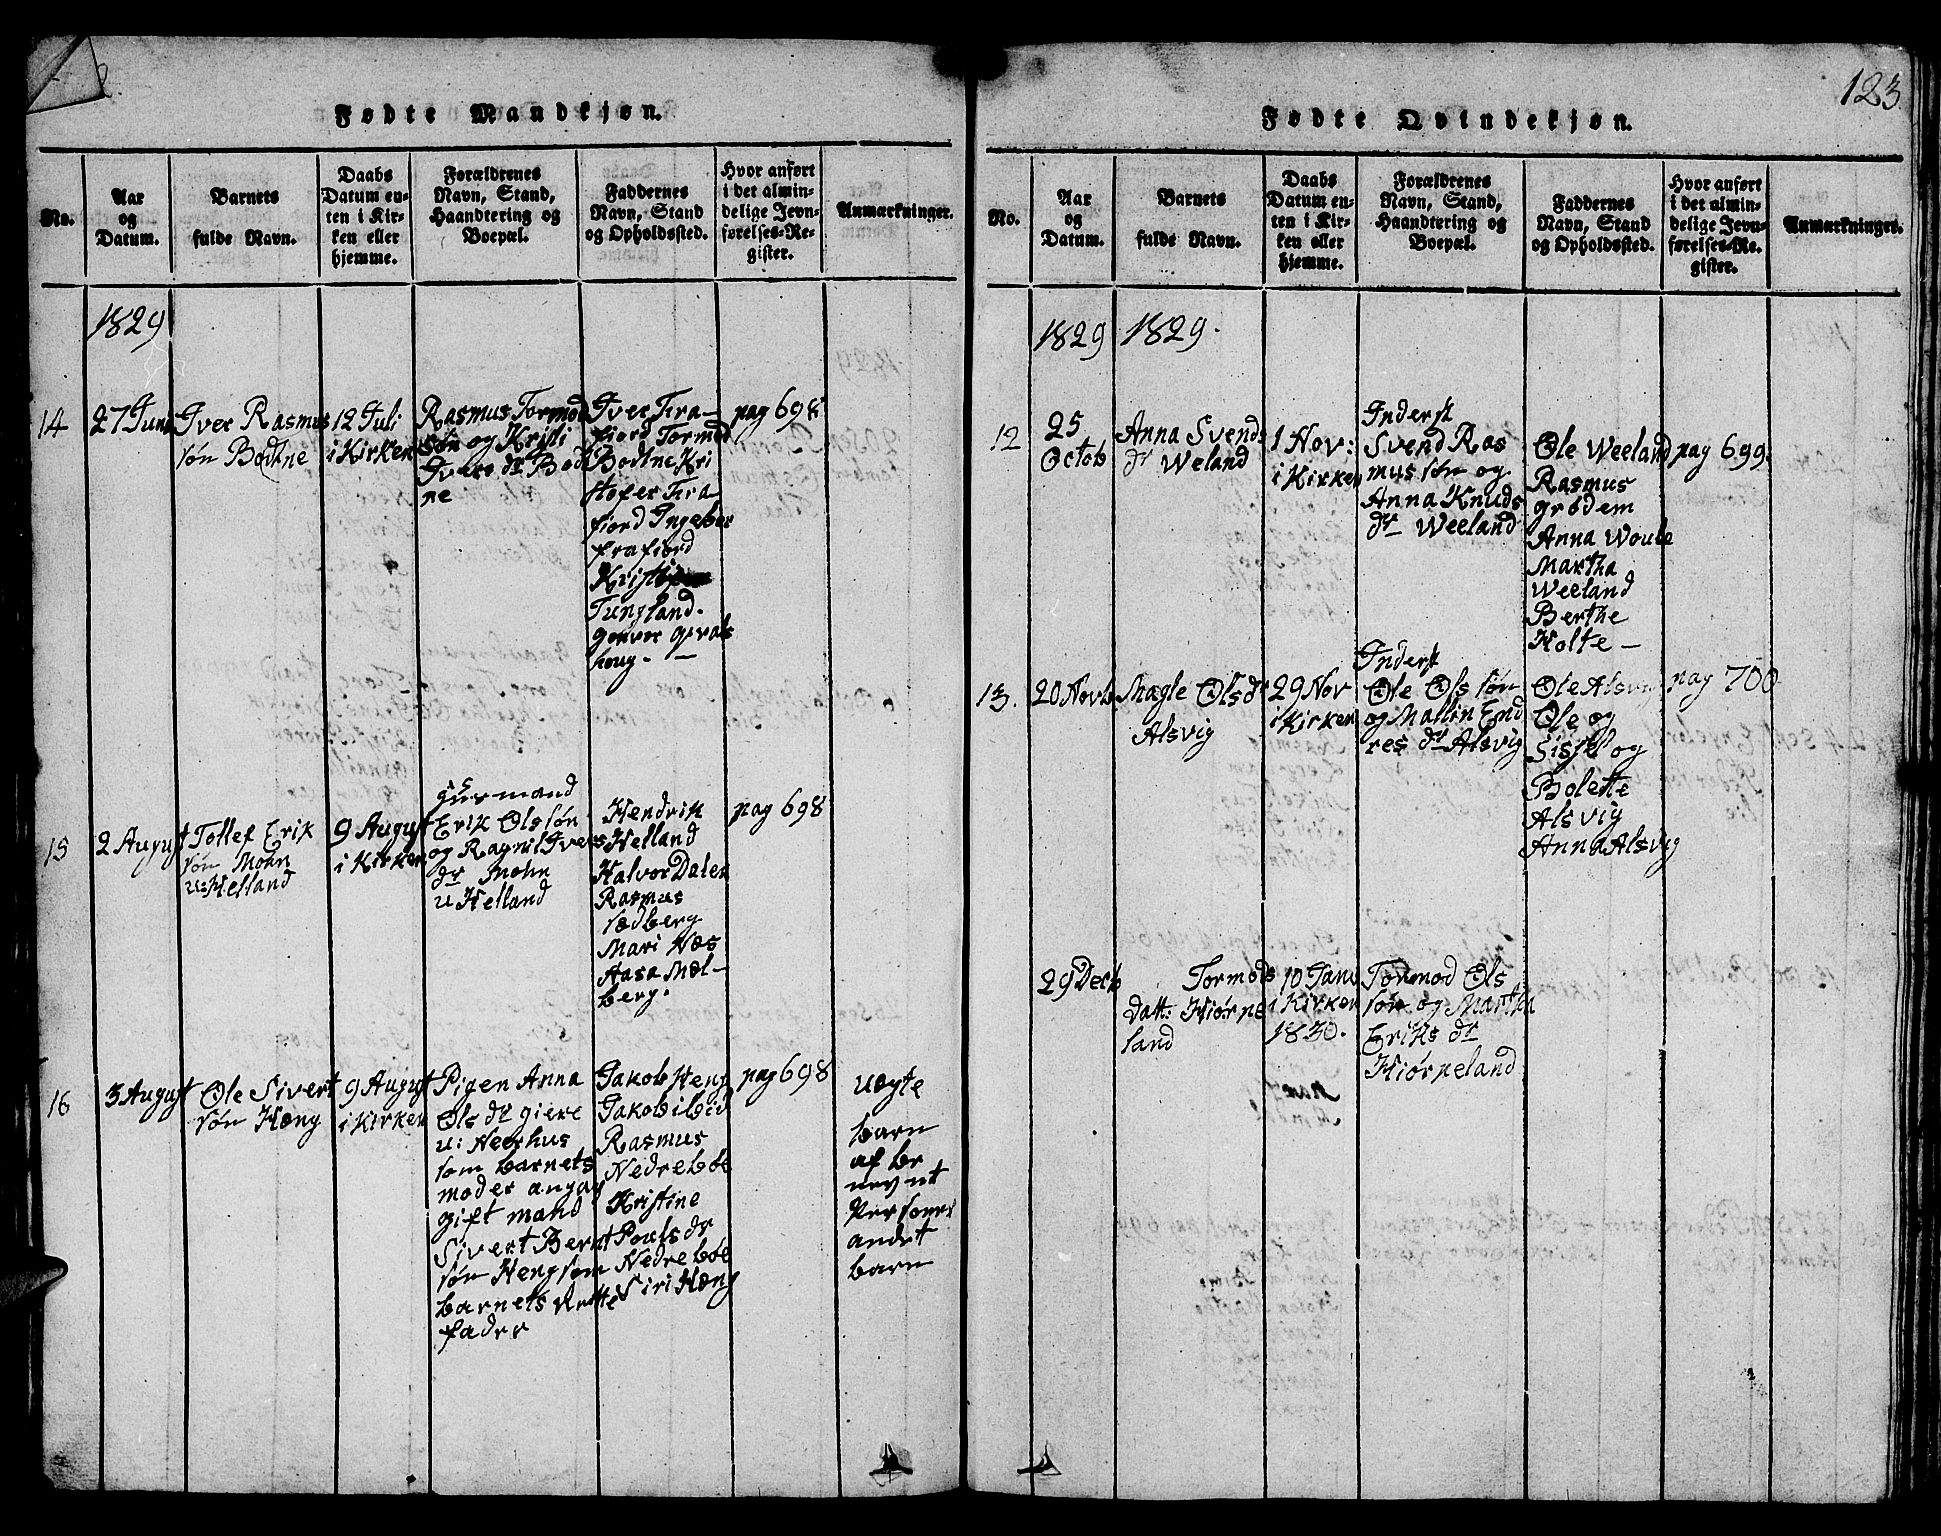 123
Fødte Mandkjøn.
No.
Aar
og
Datum.
Barnets
fulde Navn.
Daabs
Datum en-
ten i Kir-
ken eller
hjemme.
Forældrenes
Navn, Stand,
Haandtering og
Boepæl.
Faddernes
Navn, Stand
og Opholdssted.
Hvor anført
i det almin-
delige Jevn-
førelses-Re-
gister.
Anmærkninger.
1829
14
27 Juni
Iver Rasmus
søn Bodtne
12 Juli
i Kirken
Rasmus Tormod
søn og Kristi
Ivers dr Bodt
ne
Iver Fra-
fiord Tormod
Bodtne Kri
stofer Fra-
fiord Ingeber
frafiord
Tungland.
houg. —
pag 698
15
2 August
Tollef Erik
søn Mohn
u: Helland
9 August
i Kirken
Husmand
Erik Olssøn
og Ragnil Ivers
dr Mohn
u Helland
Hendrik
Helland
Halvor Dalen
Rasmus
sædberg
Mari Næs
Aasa Mæl-
berg.
pag 698
16
3 August
Ole Sivert
søn Hæng
9 August
i Kirken
Pigen Anna
Ols dr giere
u: Neerhus
som barnets
moder angav
gift mand
Sivert Bernt
søn Heng som
barnets rette
fader
Jakob Heng
Jakob ibid
Rasmus
Nedrebøe
Kristine
Pouls dr
Nedrebøe
Siri Hæng
pag 698
Uægte
barn
af be
nevnt
Personers
andet
barn
Fødte Qvindekjøn.
No.
Aar
og
Datum.
Barnets
fulde Navn.
Daabs
Datum en-
ten i Kir-
ken eller
hjemme.
Forældrenes
Navn, Stand,
Haandtering og
Boepæl.
Faddernes
Navn, Stand
og Opholdssted.
Hvor anført
i det almin-
delige Jevn-
førelses-Re-
gister.
Anmærkninger.
1829
1829.
12
25
Octob
Anna Svends
dr Weland
1 Nov:
i Kirken
Inderst
Svend Ras
mus søn og
Anna Knuds
dr Weeland
Ole Weeland
Rasmus
grødem
Anna Woule
Martha
Weeland
Berthe
Holte —
pag 699.
13.
20 Novb
Magle Olsdr
Alsvig
29 Nov
i Kirken
Inderst
Ole Ols søn
og Mallin End
res dr Alsvig
Ole Alsvig
Ole og
Sisjel og
Bolette
Alsvig
Anna Alsvig
pag 700
29 Decb
Tormods
datt: Hiørpe
land
10 Janu
i Kirken
1830.
Tormod Ols
søn og Martha
Eriks dr
Hiørpeland